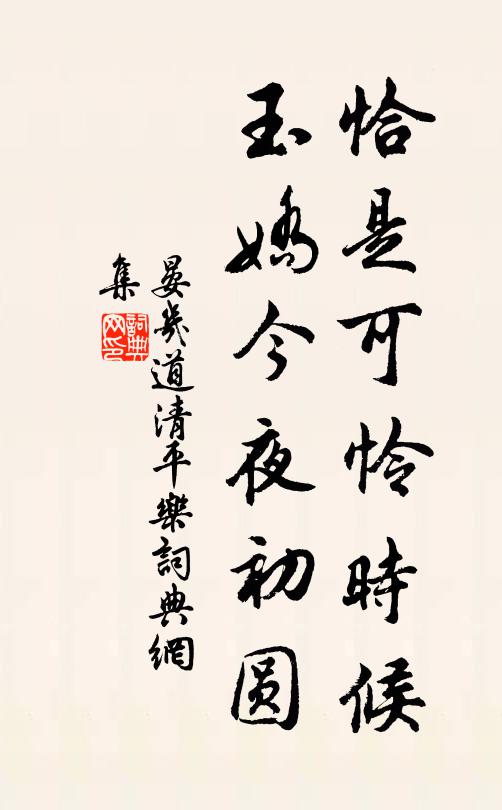 恰是可怜時候
玉嬌今夜初圆
晏幾道清平樂詞典網
集
詞典网印